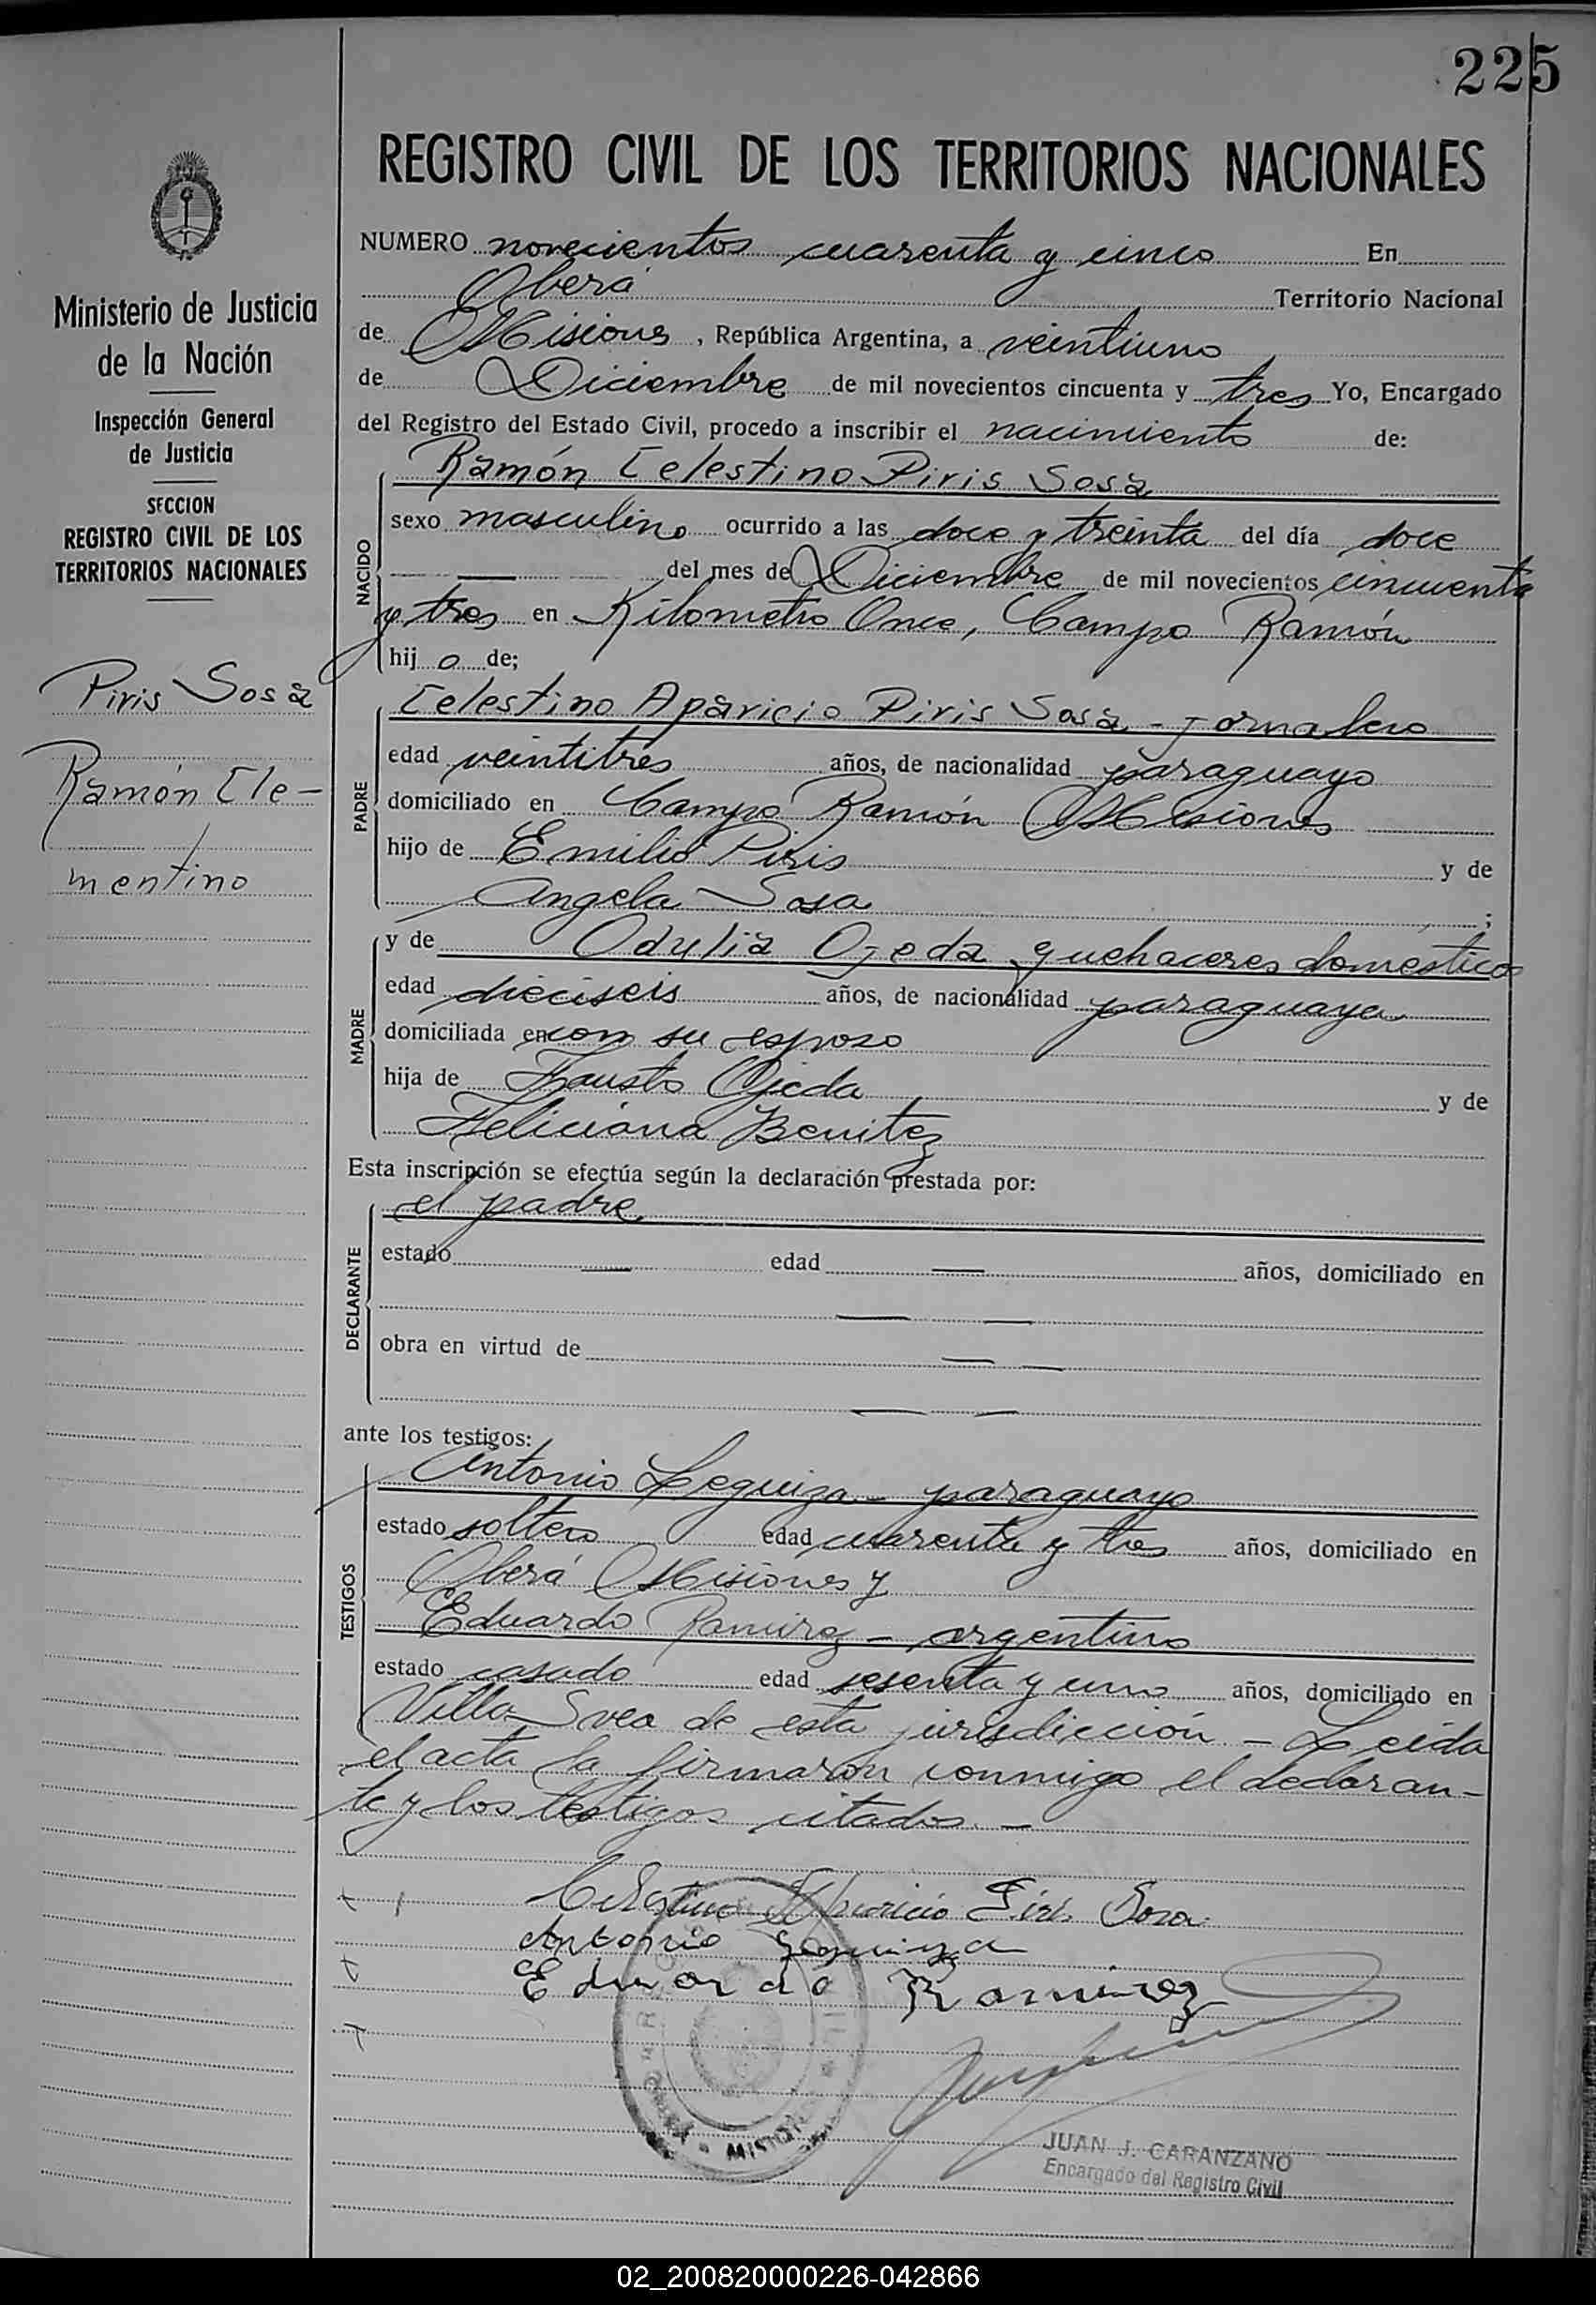 225
REGISTRO CIVIL DE LOS TERRITORIOS NACIONALES
Ministerio de Justicia
de la Nación
Inspección General
de Justicia
SECCION
REGISTRO CIVIL DE LOS
TERRITORIOS NACIONALES
Piris Sosa
Ramón Cle-
mentino
NUMERO novecientos cuarenta y cinco En
Oberá Territorio Nacional
de Misiones, República Argentina, a veintiuno
de Diciembre de mil novecientos cincuenta y tres Yo, Encargado
del Registro del Estado Civil, procedo a inscribir el nacimiento de:
NACIDO
Ramón Celestino Piris Sosa
sexo masculino ocurrido a las doce y treinta del día doce
del mes de Diciembre de mil novecientos cincuenta
y tres en Kilometro Once, Campo Ramón
hij o de;
PADRE
Celestino Aparicio Piris Sosa - jornalero
edad veintitres años, de nacionalidad paraguayo
domiciliado en Campo Ramón Misiones
hijo de Emilio Piris y de
Angela Sosa ;
MADRE
y de Odulia Ojeda quehaceres domésticos
edad dieciseis años, de nacionalidad paraguaya
domiciliada en con su esposo
hija de Fausto Ojeda y de
Feliciana Benitez
Esta inscripción se efectúa según la declaración prestada por:
DECLARANTE
el padre
estado — edad — años, domiciliado en
— —
obra en virtud de — —
— —
ante los testigos:
TESTIGOS
Antonio Leguiza - paraguayo
estado soltero edad cuarenta y tres años, domiciliado en
Oberá Misiones y
Eduardo Ramirez - argentino
estado casado edad sesenta y uno años, domiciliado en
Villa Svea de esta jurisdicción - Leida
el acta la firmaron conmigo el declaran-
te y los testigos citados. -
Celestino Aparicio Piris Sosa
Antonio Leguiza
Eduardo Ramirez
MISIONES
JUAN J. CARANZANO
Encargado del Registro Civil
02_200820000226-042866